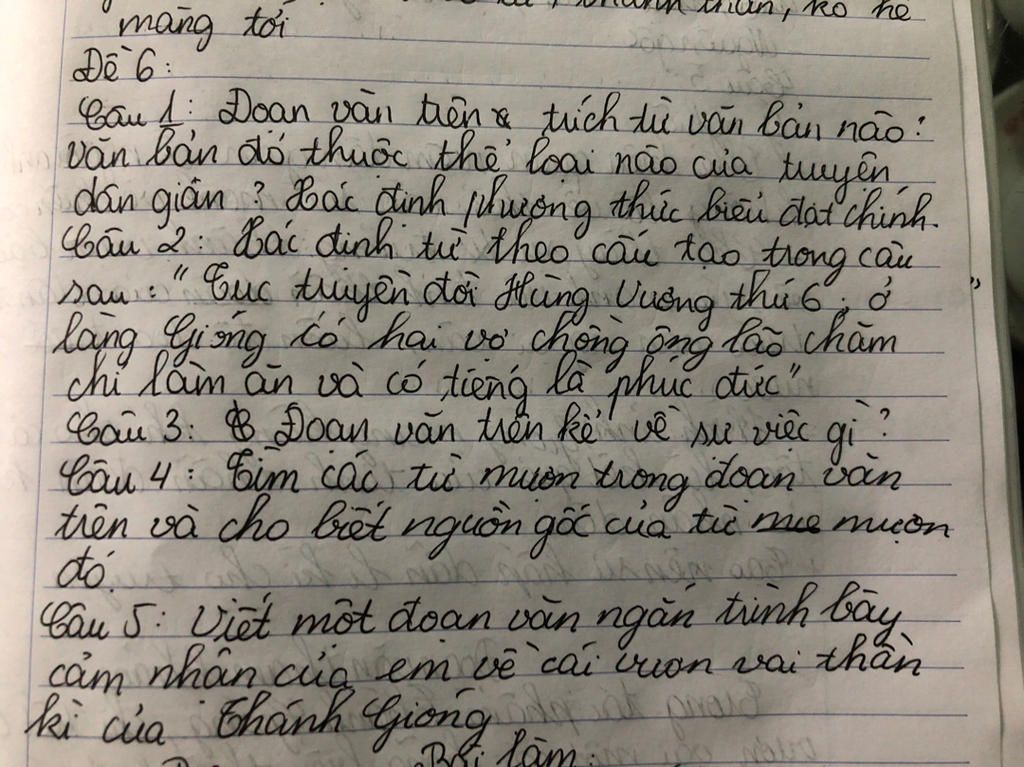 thần, ko hề
mang tới
Đề 6:
Câu 1: Đoạn văn trên trích từ văn bản nào?
văn bản đó thuộc thể loại nào của truyện
dân gian? Xác định phương thức biểu đạt chính.
Câu 2: Xác định từ theo cấu tạo trong câu
sau: "Tục truyền đời Hùng Vương thứ 6, ở "
làng Gióng có hai vợ chồng ông lão chăm
chỉ làm ăn và có tiếng là phúc đức"
Câu 3: Đoạn văn trên kể về sự việc gì?
Câu 4: Tìm các từ mượn trong đoạn văn
trên và cho biết nguồn gốc của từ mượn
đó.
Câu 5: Viết một đoạn văn ngắn trình bày
cảm nhận của em về cái vươn vai thần
kì của Thánh Gióng
Bài làm: